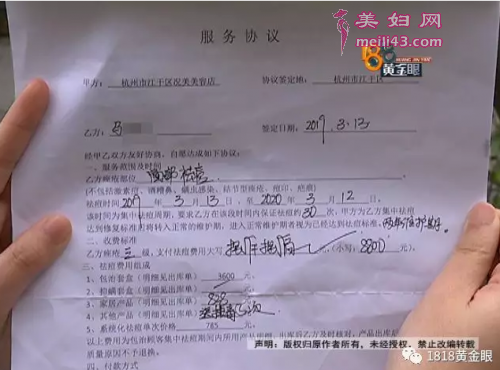 美妇网
meili43.com
1818
黄金眼
服务协议
甲方：杭州市江干区况美美容店 协议签定地：杭州市江干区
乙方：马 签定日期：2019.3.13
经甲乙双方友好协商，自愿达成如下协议：
一、服务范围及时间
乙方痤疮部位 面部祛痘
(不包括激素痘、酒糟鼻、螨虫感染、结节型痤疮、痘印、疤痕)
祛痘时间 2019 年 3 月 13 日至 2020 年 3 月 12 日。
该时间为集中祛痘周期，要求乙方在该段时间内保证祛痘约30次，甲方为乙方集中祛痘
达到修复标准后将转入正常的维护期，进入正常维护期者视为已经达到祛痘标准。
二、收费标准
乙方痤疮 三 级，支付祛痘费用大写 捌仟捌佰 (小写：8800 元)。
三、祛痘费用组成
1、包治套盒（明细见出库单） 3600 元；
2、祛螨套盒（明细见出库单） 元；
3、家居产品（明细见出库单） 元；
4、其他产品（明细见出库单） 元；
5、系统化祛痘单次价格 785 元；
以上费用为包括顾客集中祛痘期间内所用
质量原因不予退换。
四、付款方式
声明：版权归原作者所有，未经授权，禁止改编转载
1818黄金眼